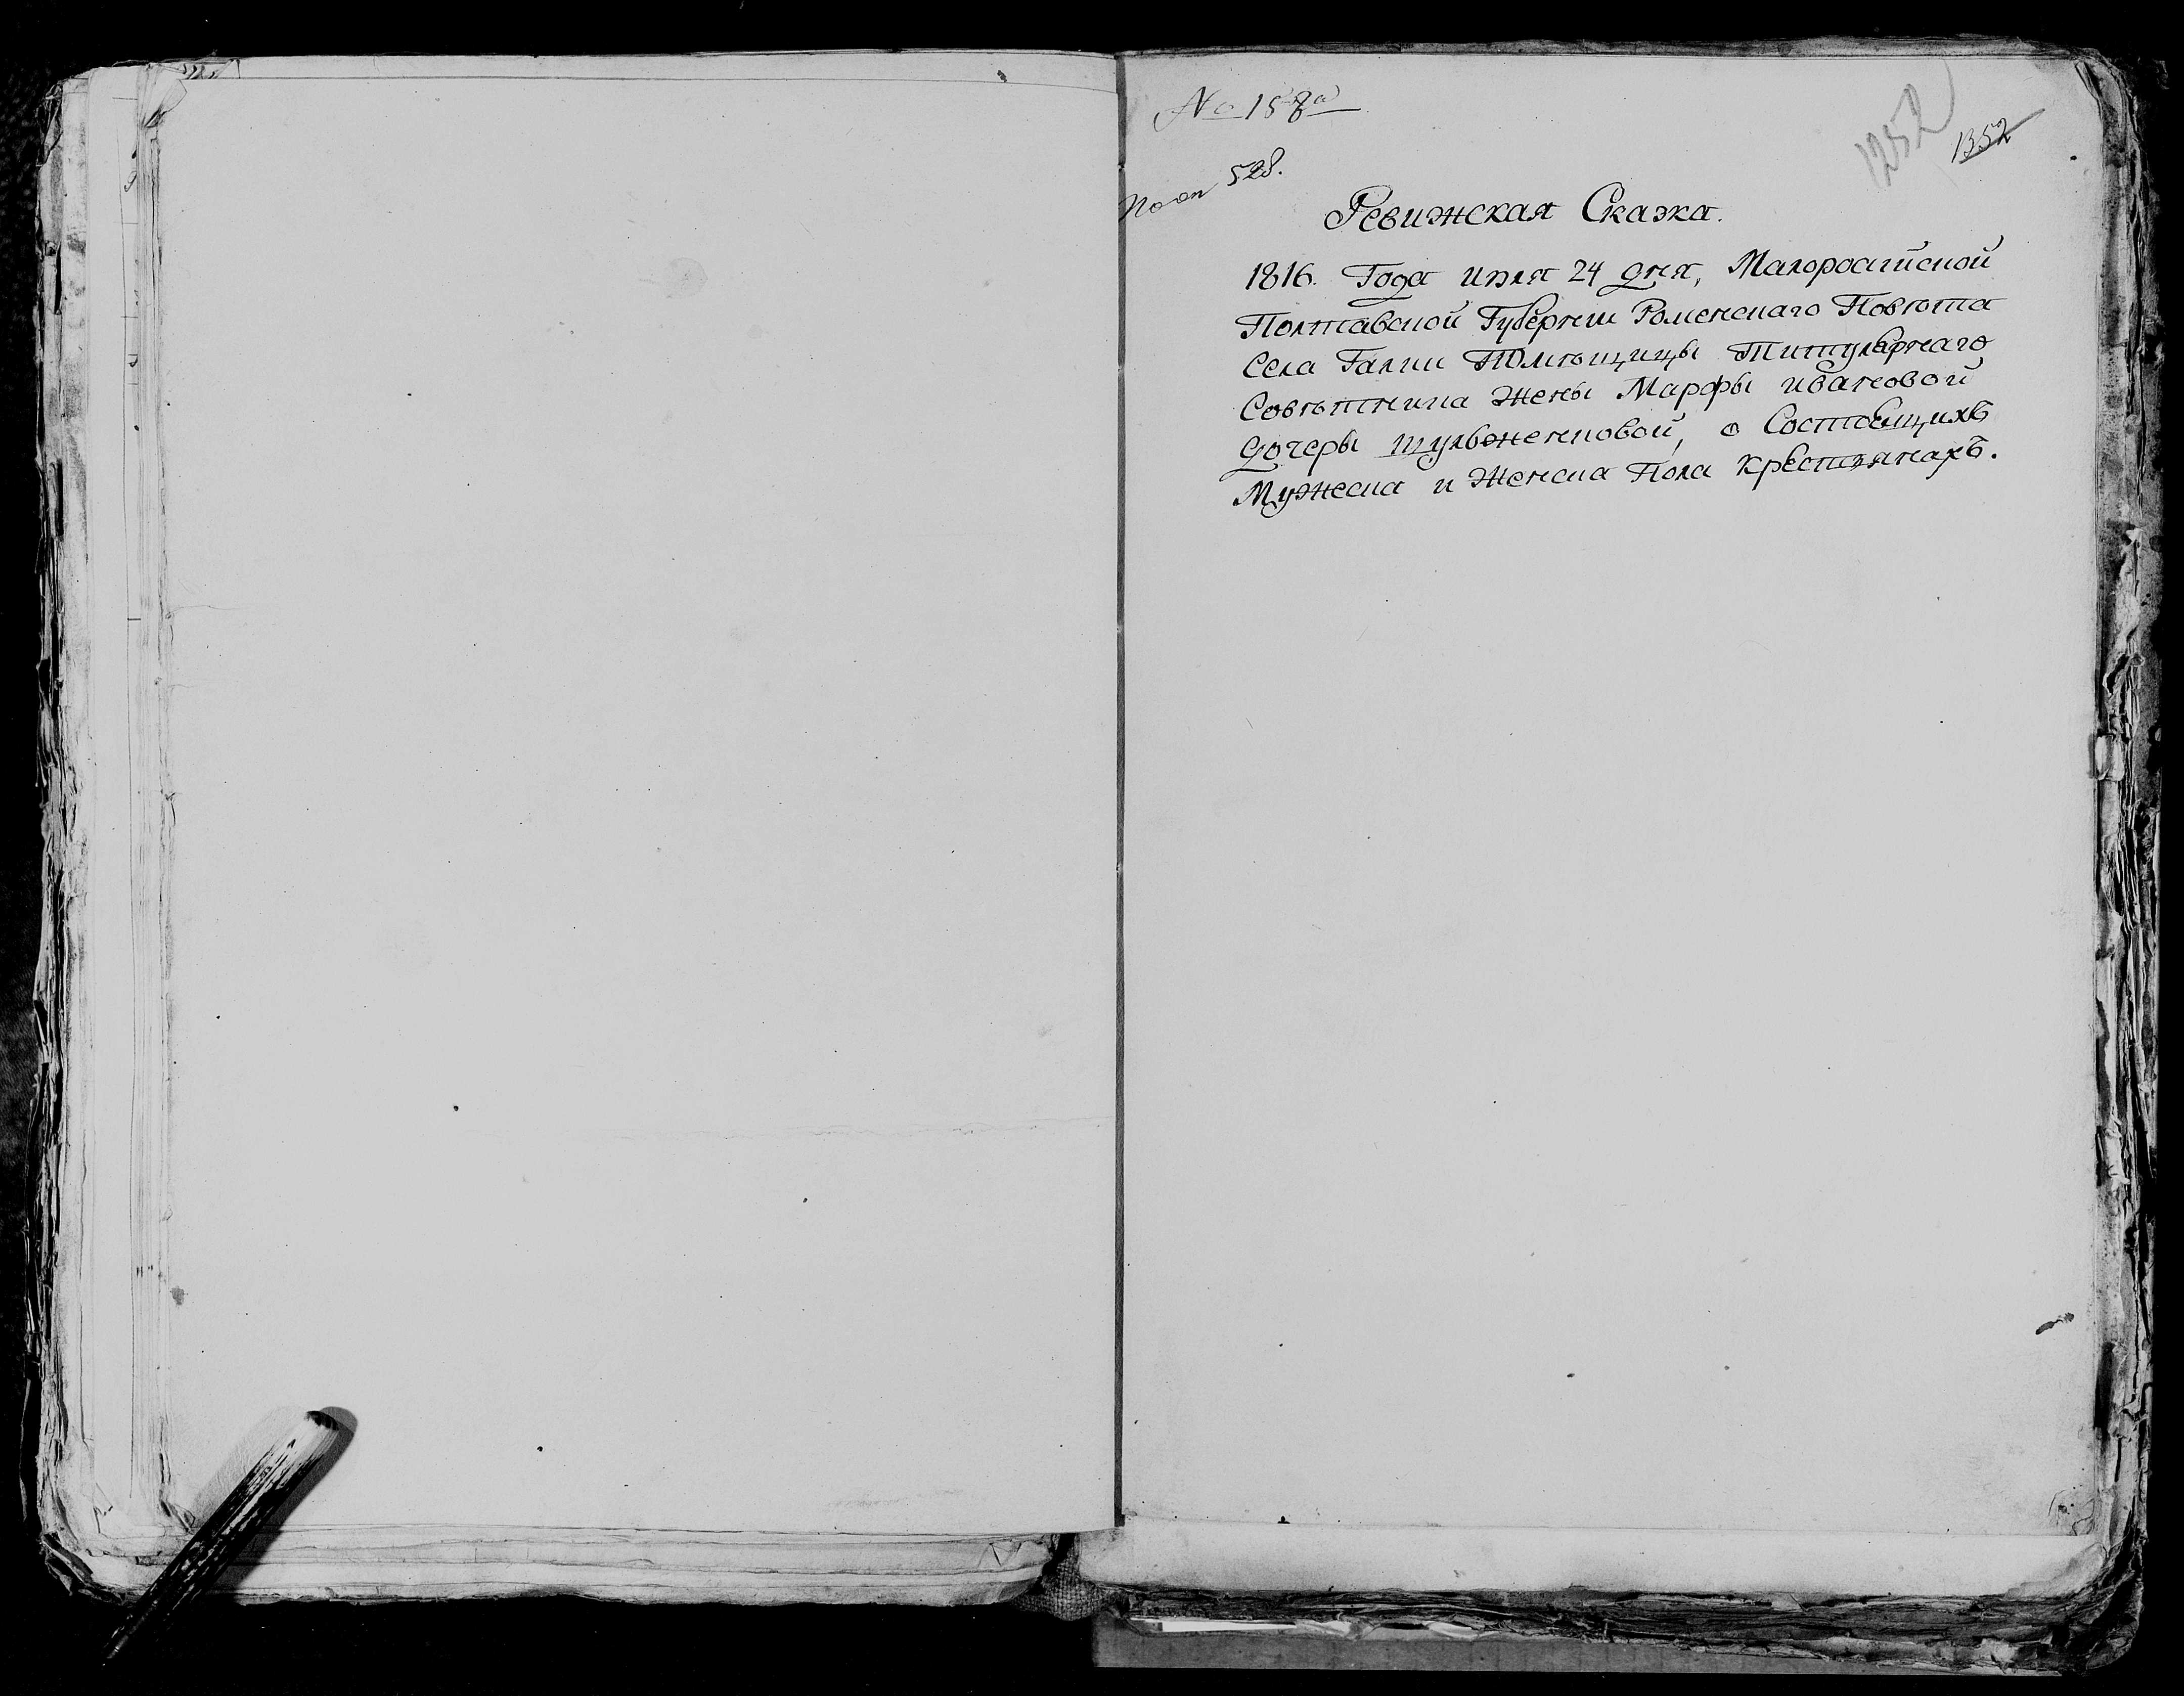 No 158а
1252
1352
По оп 528.
Ревижская Сказка.
1816. Года июля 24 дня, Малоросийской
Полтавской Губернии Роменскаго Повѣта
Села Галки Помѣщицы Титулярнаго
Совѣтника Жены Марфы ивановой
дочеры шулженковой, о Состоящихъ
Мужеска и Женска Пола крестянахъ.